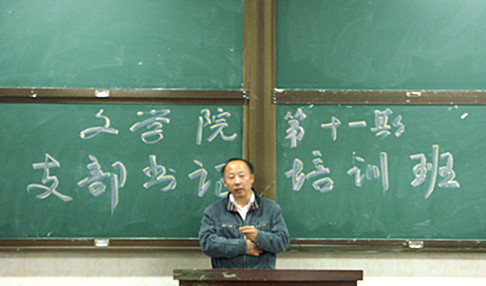 文学院 第十一期
支部书记 培训班